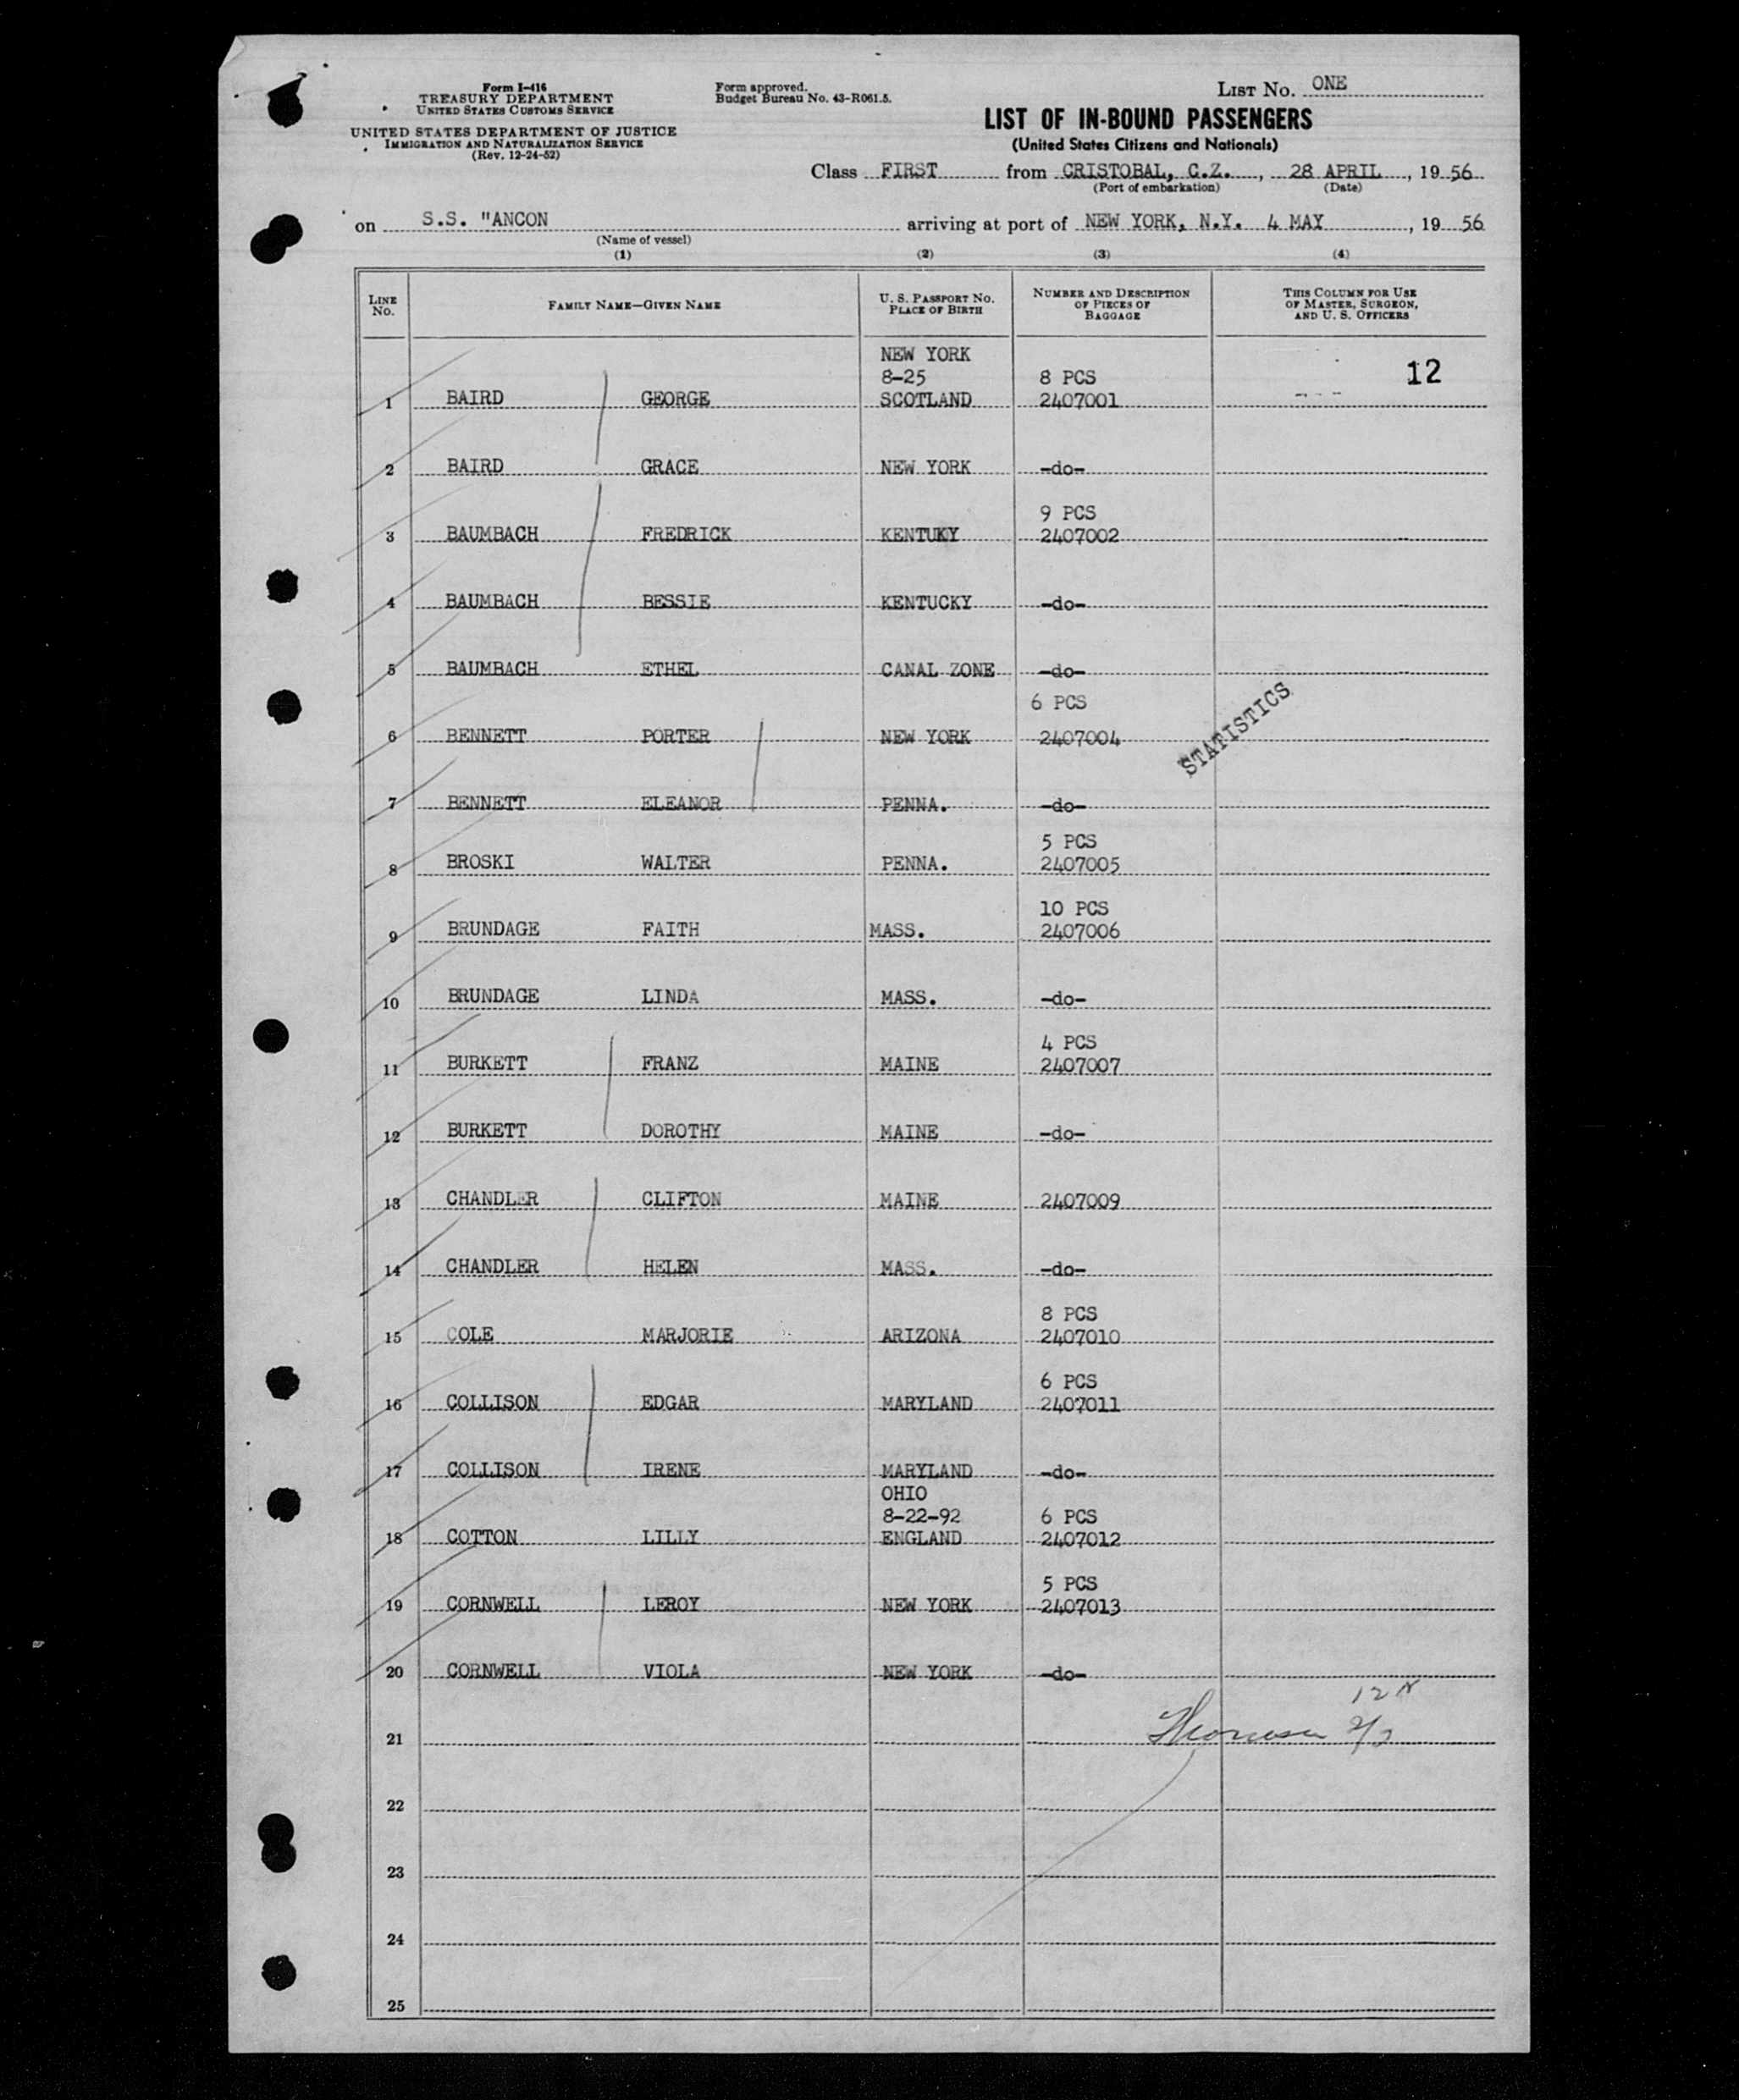 Form I-416
TREASURY DEPARTMENT
UNITED STATES CUSTOMS SERVICE
UNITED STATES DEPARTMENT OF JUSTICE
IMMIGRATION AND NATURALIZATION SERVICE
(Rev. 12-24-52)
Form approved.
Budget Bureau No. 43-R061.5.
LIST NO. ONE
LIST OF IN-BOUND PASSENGERS
(United States Citizens and Nationals)
Class FIRST from CRISTOBAL, C.Z., 28 APRIL, 19 56
(Port of embarkation) (Date)
on S.S. "ANCON arriving at port of NEW YORK, N.Y. 4 MAY, 19 56
(Name of vessel)
(1) (2) (3) (4)
LINE NO. FAMILY NAME—GIVEN NAME U. S. PASSPORT NO. PLACE OF BIRTH NUMBER AND DESCRIPTION OF PIECES OF BAGGAGE THIS COLUMN FOR USE OF MASTER, SURGEON, AND U. S. OFFICERS
NEW YORK
8-25 8 PCS 12
1 BAIRD GEORGE SCOTLAND 2407001
2 BAIRD GRACE NEW YORK -do-
9 PCS
3 BAUMBACH FREDRICK KENTUKY 2407002
4 BAUMBACH BESSIE KENTUCKY -do-
5 BAUMBACH ETHEL CANAL ZONE -do-
6 PCS
STATISTICS
6 BENNETT PORTER NEW YORK 2407004
7 BENNETT ELEANOR PENNA. -do-
5 PCS
8 BROSKI WALTER PENNA. 2407005
10 PCS
9 BRUNDAGE FAITH MASS. 2407006
10 BRUNDAGE LINDA MASS. -do-
4 PCS
11 BURKETT FRANZ MAINE 2407007
12 BURKETT DOROTHY MAINE -do-
13 CHANDLER CLIFTON MAINE 2407009
14 CHANDLER HELEN MASS. -do-
8 PCS
15 COLE MARJORIE ARIZONA 2407010
6 PCS
16 COLLISON EDGAR MARYLAND 2407011
17 COLLISON IRENE MARYLAND -do-
OHIO
8-22-92 6 PCS
18 COTTON LILLY ENGLAND 2407012
5 PCS
19 CORNWELL LEROY NEW YORK 2407013
20 CORNWELL VIOLA NEW YORK -do-
21
22
23
24
25